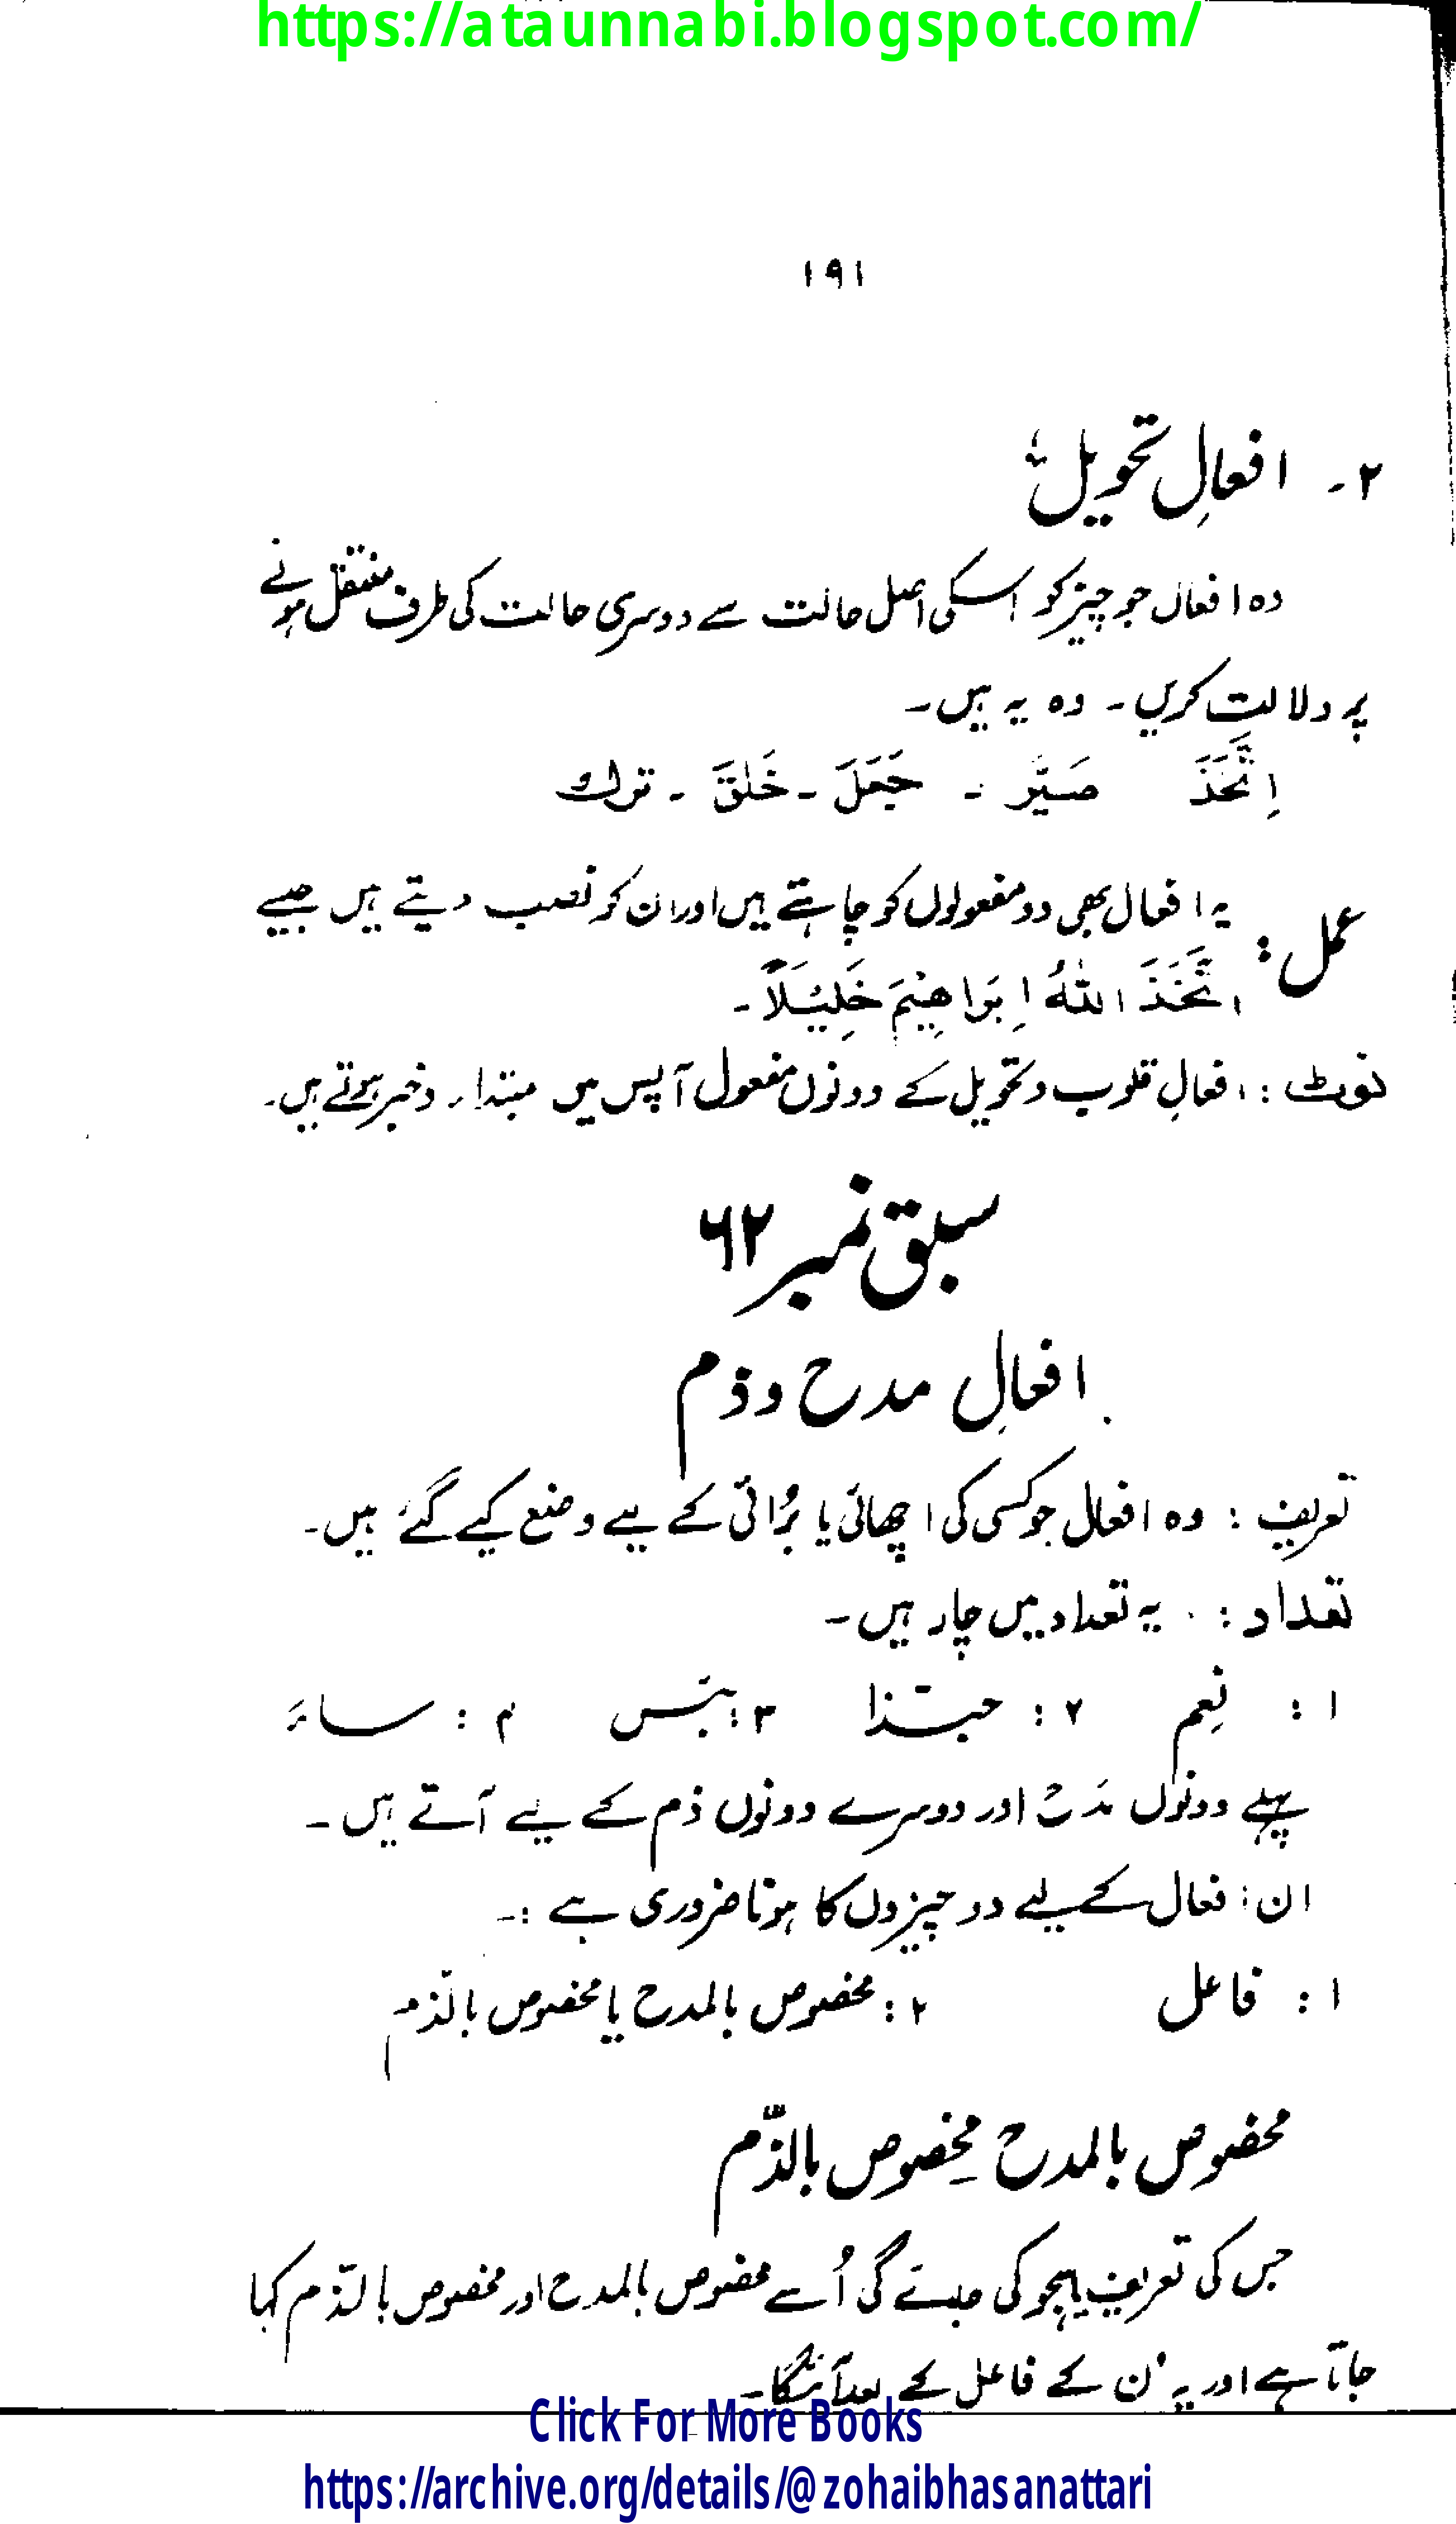 https://ataunnabi.blogspot.com/
۱۹۱
۲۔ افعالِ تحویل؛
وہ افعال جو چیز کو اسکی اصل حالت سے دوسری حالت کی طرف منتقل ہونے
پر دلالت کریں۔ وہ یہ ہیں۔
اِتَّخَذَ صَیَّر ۔ جَعَلَ ۔ خَلَقَ ۔ ترك
عمل: یہ افعال بھی دو مفعولوں کو چاہتے ہیں اور ان کو نصب دیتے ہیں جیسے
اتَّخَذَ اللّٰهُ اِبَراهِیْمَ خَلِیْلَاً۔
نوٹ: افعالِ قلوب و تحویل کے دونوں مفعول آپس میں مبتداء وخبر ہوتے ہیں۔
سبق نمبر ۶۲
افعالِ مدح و ذم
تعریف: وہ افعال جو کسی کی اچھائی یا بُرائی کے لیے وضع کیے گئے ہیں۔
تعداد: یہ تعداد میں چار ہیں۔
۱: نِعم ۲: حبّذا ۳: بئس ۴: ساءَ
پہلے دونوں مَدح اور دوسرے دونوں ذم کے لیے آتے ہیں۔
ان افعال کے لیے دو چیزوں کا ہونا ضروری ہے :۔
۱: فاعل ۲: مخصوص بالمدح یا مخصوص بالذّم
مخصوص بالمدح مخصوص بالذّم
جس کی تعریف یا ہجو کی جائے گی اُسے مخصوص بالمدح اور مخصوص بالذّم کہا
جاتا ہے اور یہ ان کے فاعل کے بعد آئیگا۔
Click For More Books
https://archive.org/details/@zohaibhasanattari